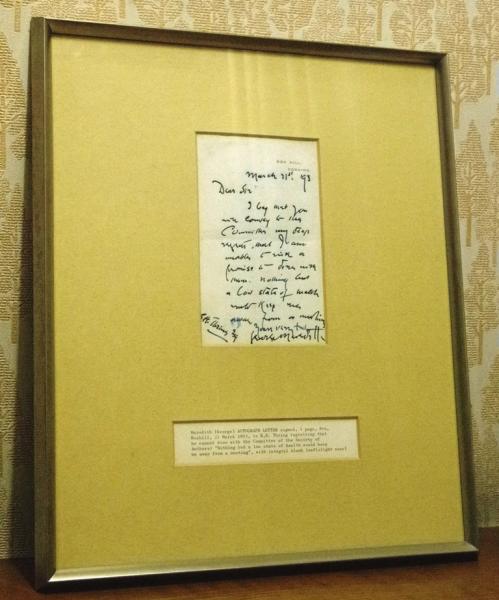 BOX HILL,
DORKING.
March 21st. 193
Dear Sir
I beg that you
will convey to the
Committee my deep
regret, that I am
unable to risk a
promise to dine with
them. Nothing but
a low state of health
would keep me
away from a meeting
Yours very truly
George Meredith
G.H. Thring Esq
Meredith (George) AUTOGRAPH LETTER signed, 1 page, 8vo,
Boxhill, 21 March 1903, to G.H. Thring regretting that
he cannot dine with the Committee of the Society of
Authors: "Nothing but a low state of health would keep
me away from a meeting", with integral blank leaf